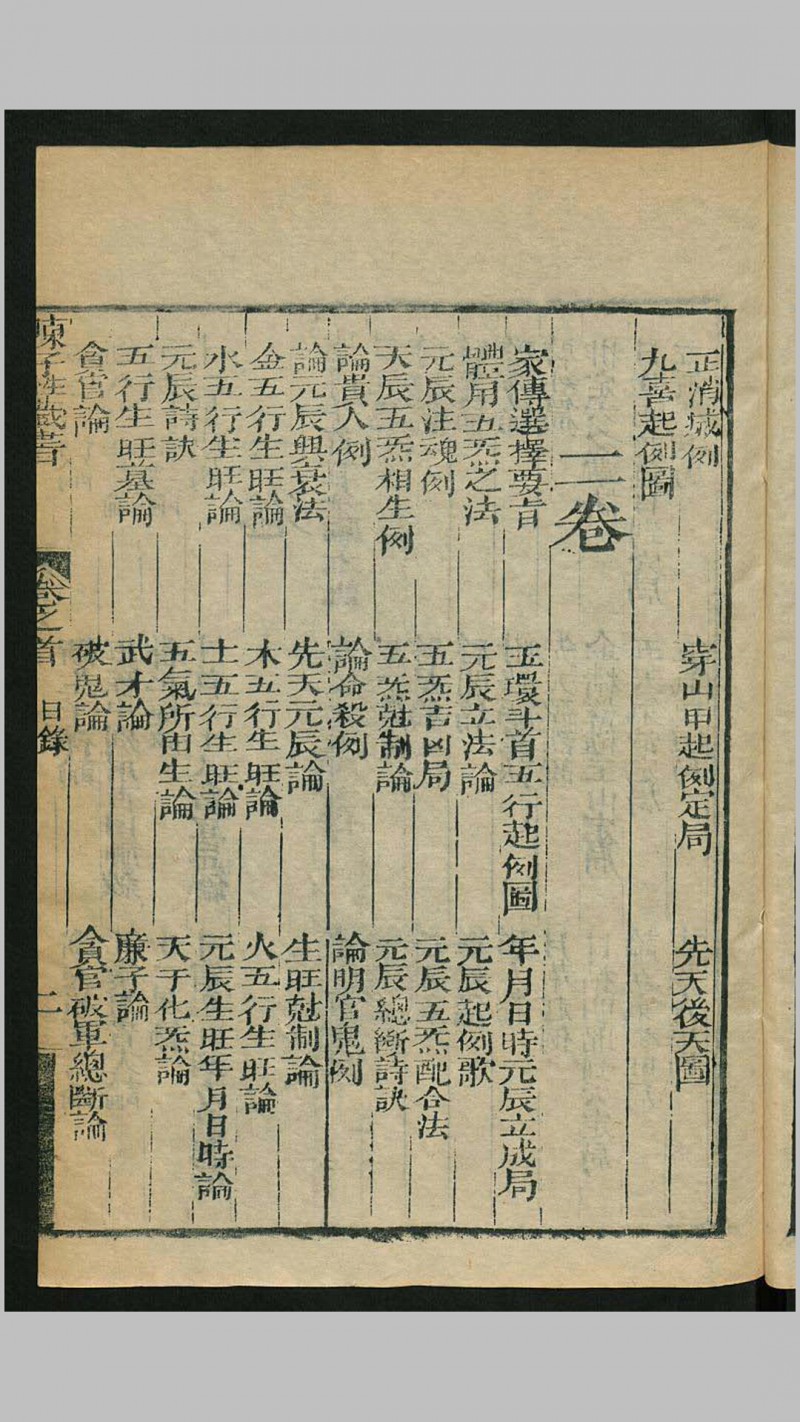 正消滅例　穿山甲起例定局　先天後天圖
九喜起例圖
二卷
家傳選擇要旨　玉環斗首五行起例圖　年月日時元辰立成局
體用五炁之法　元辰立法論　元辰起例歌
元辰注魂例　五炁吉凶局　元辰五炁配合法
天辰五炁相生例　五炁尅制論　元辰總断詩訣
論貴人例　論命殺例　論明官鬼例
論元辰興衰法　先天元辰論　生旺尅制論
金五行生旺論　木五行生旺論　火五行生旺論
水五行生旺論　土五行生旺論　元辰生旺年月日時論
元辰詩訣　五氣所由生論　天干化炁論
五行生旺墓論　武才論　廉子論
貪官論　破鬼論　貪官破軍總斷論
陳子性藏書　卷之首　目錄　二